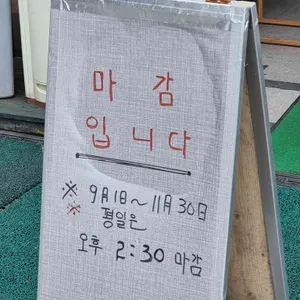 마 감
입니다
※ 9月1日~11月30日
※ 평일은
오후 2:30 마감